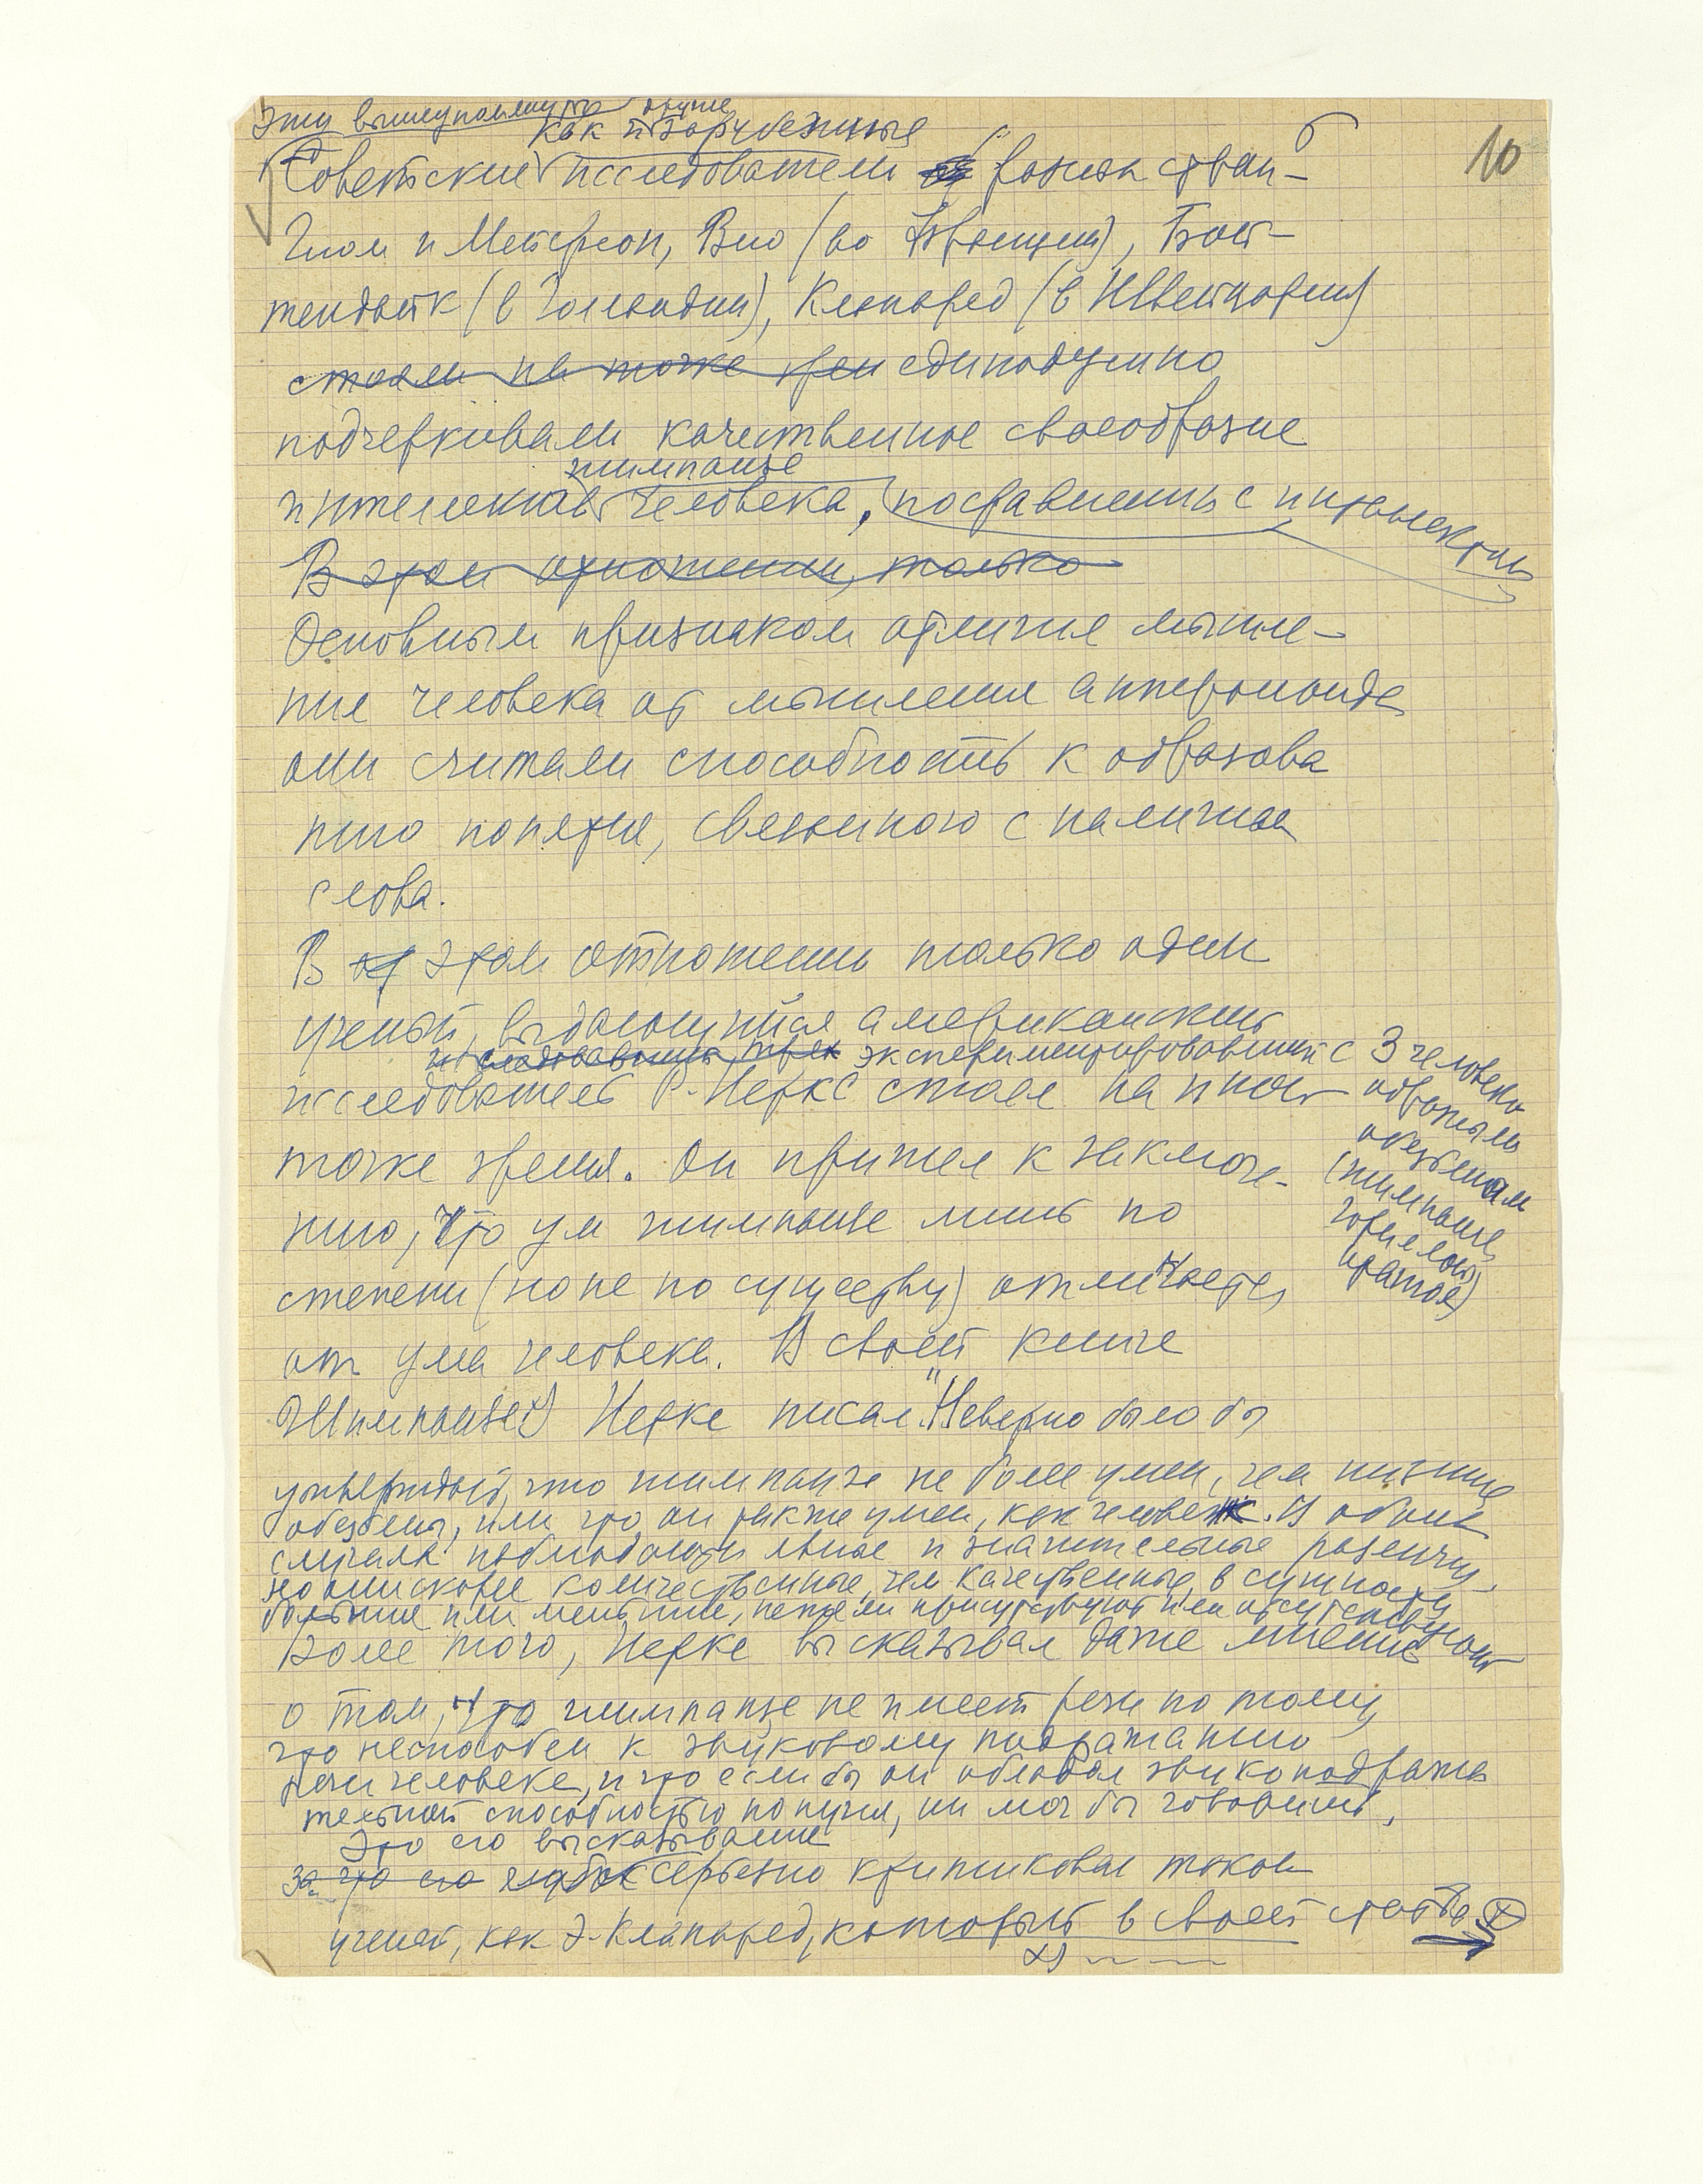 Эту вышеупомянутую другие
как и зарубежные
10
Советские исследователи разных стран –
Гюом и Мейерсон, Вио (во Франции), Бой-
тендайк (в Голландии), Клапаред (в Швейцарии)
стояли на точке зрен единодушно
подчеркивали качественное своеобразие
шимпанзе
интеллекта человека, по сравнению с интеллектом
В этом отношении, только
Основным признаком отличия мышле-
ния человека от мышления антропоида
они считали способность к образова
нию понятия, связанного с наличием
слова.
В от этом отношении только один
ученый, выдающийся американский
исследовавший трех экспериментировавший с 3 человеко
образными
обезьянами
(шимпанзе,
гориллой,
орангом)
исследователь Р. Иеркс стоял на иной
точке зрения. Он пришел к заключе-
нию, что ум шимпанзе лишь по
степени (но не по существу) отличается
от ума человека. В своей книге
Шимпанзе Иеркс писал: "Неверно было бы
утверждать, что шимпанзе не более умен, чем низшие
обезьяны, или что он также умен, как человек. В обоих
случаях наблюдаются явные и значительные различия,
но они скорее количественные, чем качественные, в сущности
большие или меньшие, нежели присутствуют или отсутствуют
Более того, Иеркс высказывал даже мнение
о том, что шимпанзе не имеет речи потому,
что неспособен к звуковому подражанию
речи человека, и что если бы он обладал звукоподража
тельной способностью попугая, он мог бы говорить,
Это его высказывание
За что его серьезно критиковал такой
ученый, как Э. Клапаред, который в своей статье